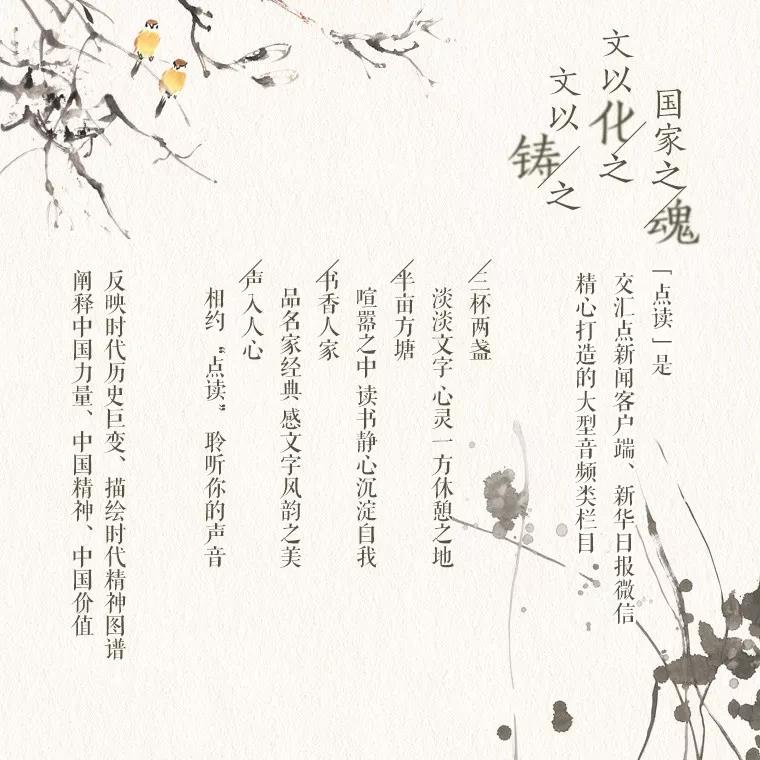 国家之魂
文以化之
文以铸之
「点读」是
交汇点新闻客户端、新华日报微信
精心打造的大型音频类栏目
三杯两盏
淡淡文字 心灵一方休憩之地
半亩方塘
喧嚣之中 读书静心沉淀自我
书香人家
品名家经典 感文字风韵之美
声入人心
相约“点读” 聆听你的声音
反映时代历史巨变、描绘时代精神图谱
阐释中国力量、中国精神、中国价值